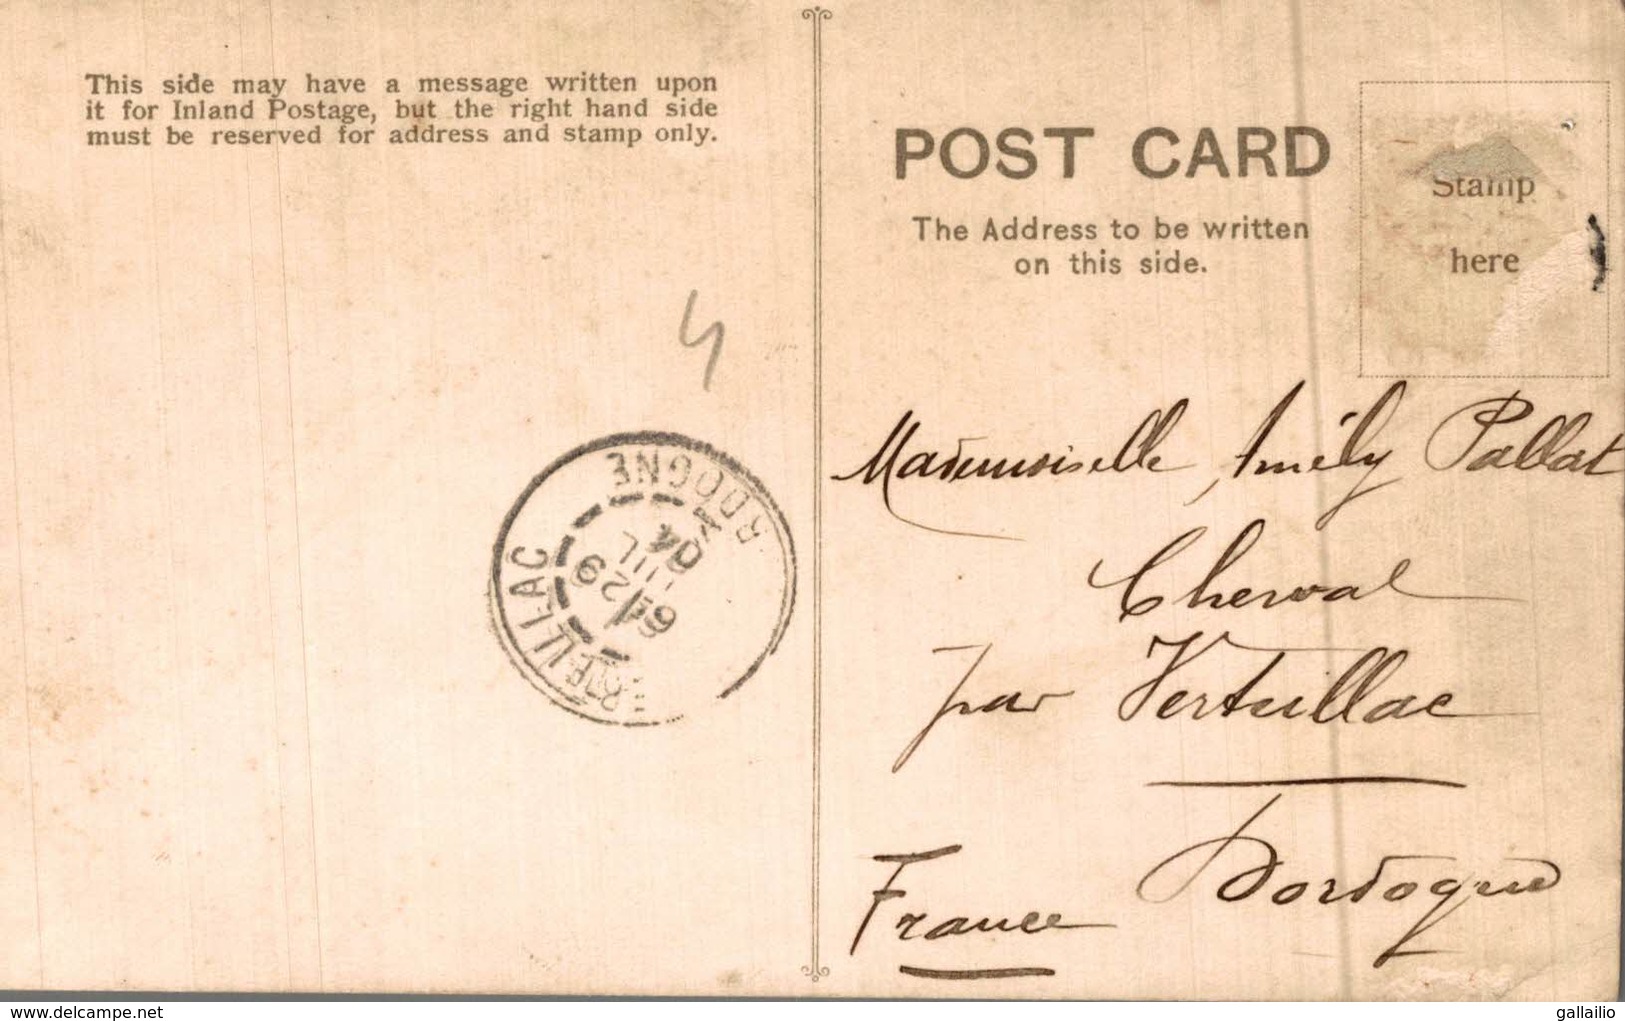 This side may have a message written upon
it for Inland Postage, but the right hand side
must be reserved for address and stamp only.
POST CARD
The Address to be written
on this side.
Stamp
here
4
Mademoiselle Amély Pallat
Cherval
par Verteillac
Dordogne
France
VERTEILLAC
DORDOGNE
6E
29
JUIL
04
delcampe.net
gallailio